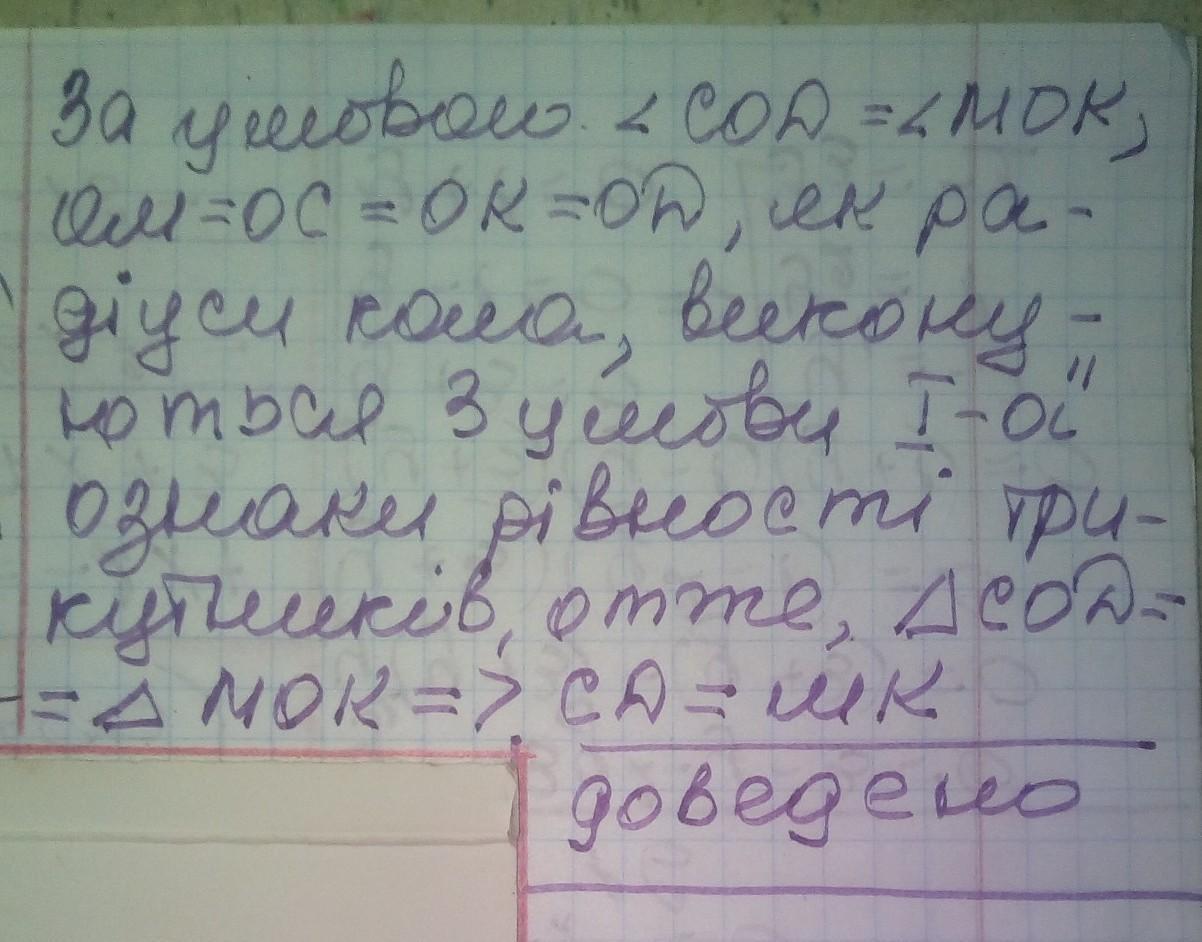 За умовою ∠COD =∠MOK,
OM=OC = OK=OD, як ра-
діуси кола, викону-
ються 3 умови I-ої
ознаки рівності три-
кутників, отже, △COD=
= △ MOK => CD = MK
доведено